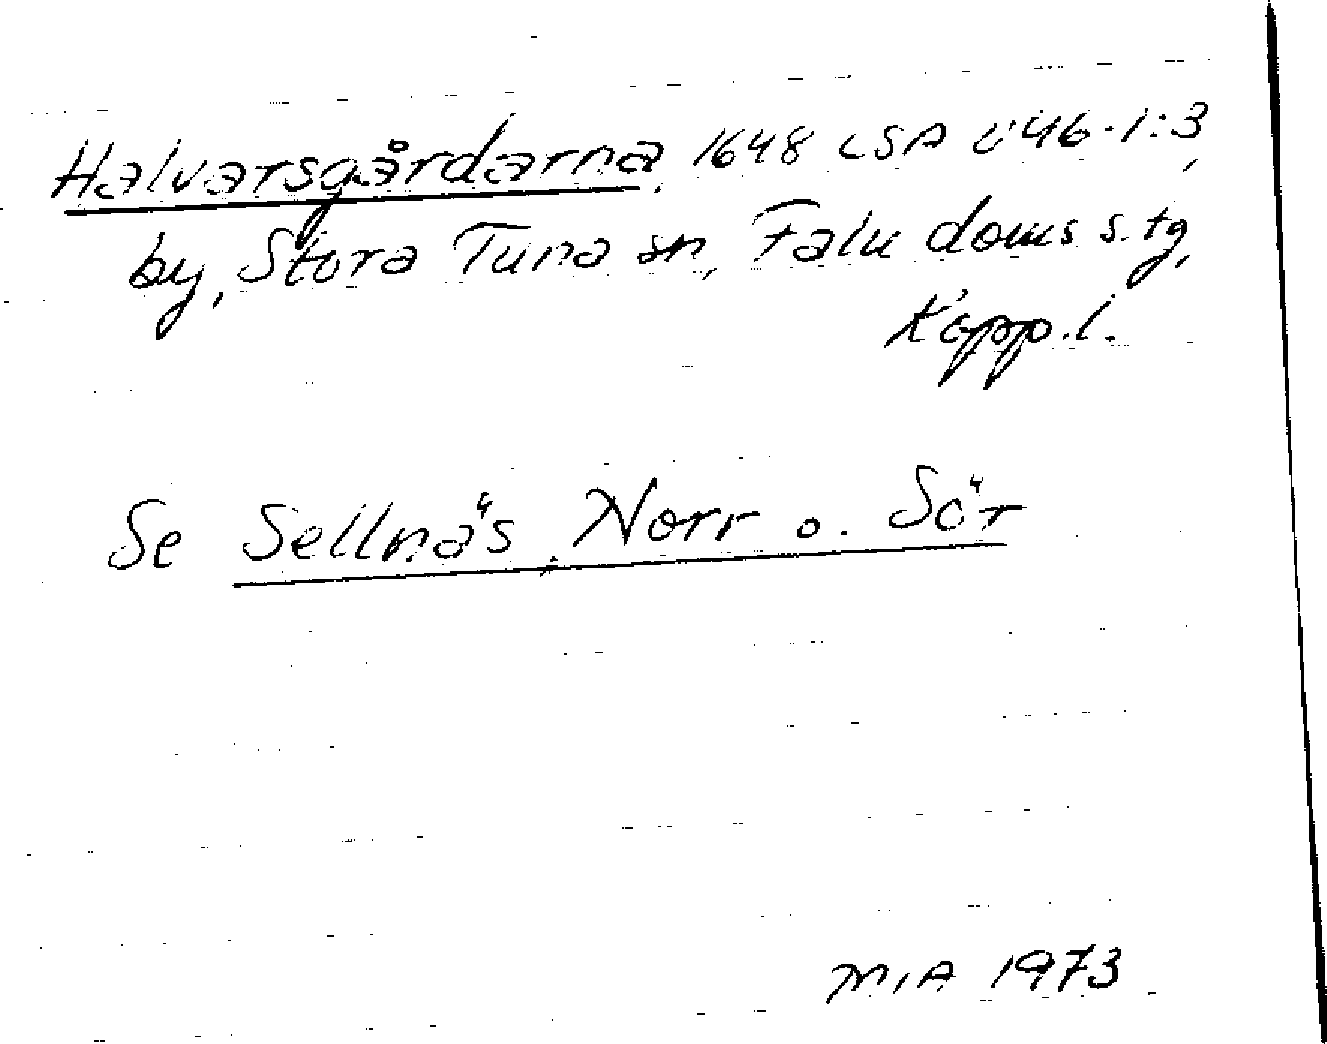 Halvarsgårdarna, 1648 LSA U46-1:3,
by, Stora Tuna sn, Falu doms s. tg,
Kopp.l.
Se Sellnäs, Norr o. Sör
MIA 1973